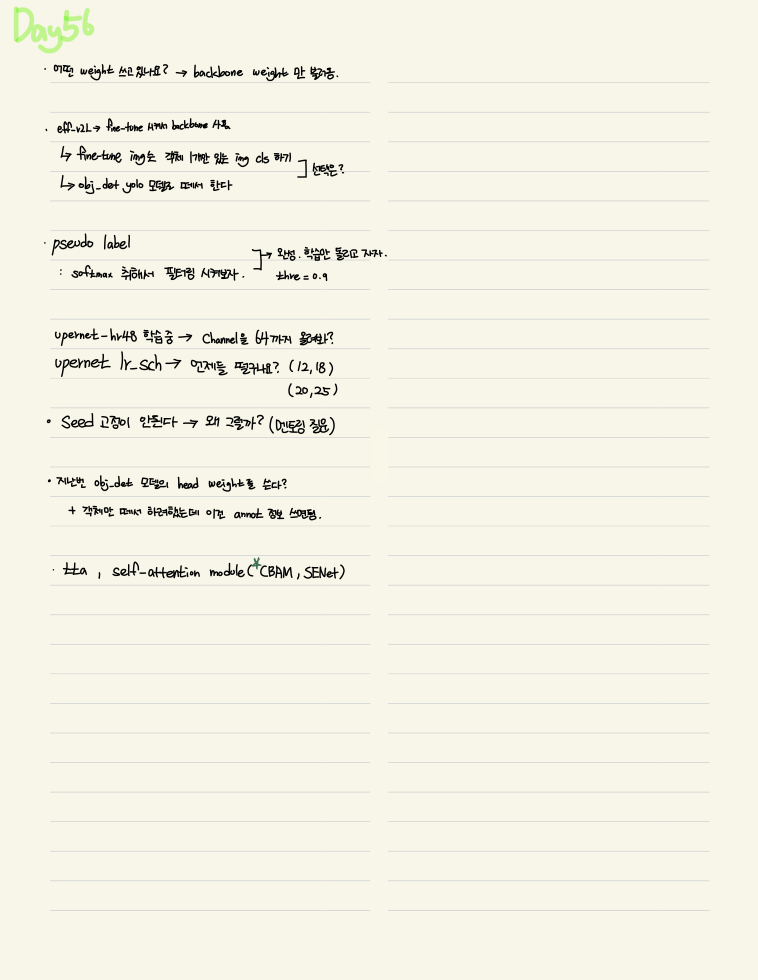 Day56
· 어떤 weight 쓰고 있나요? → backbone weight 만 불러옴.
· eff_v2L → fine-tune 시켜서 backbone 사용
↳ fine-tune img는 객체 1개만 있는 img cls 하기
선택은?
↳ obj_det yolo 모델로 떼서 한다
· pseudo label
→ 완성. 학습만 돌리고 자자.
: softmax 취해서 필터링 시켜보자.
thre = 0.9
upernet-hr48 학습중 → Channel을 64까지 올려봐?
upernet lr_sch → 언제들 떨구나요? (12,18)
(20,25)
• Seed 고정이 안된다 → 왜 그럴까? (멘토링 질문)
• 지난번 obj_det 모델의 head weight를 쓴다?
+ 객체만 떼서 하려했는데 이건 annot 정보 쓰면됨.
· tta , self-attention module(*CBAM, SENet)